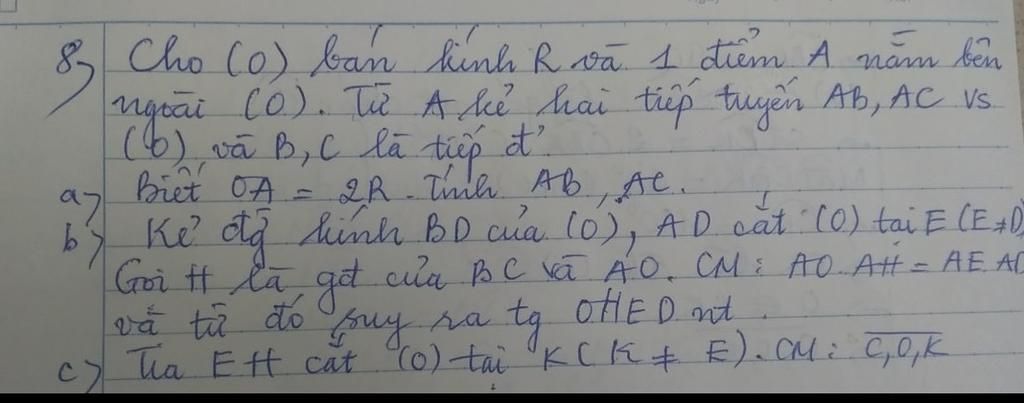 8, Cho (O) bán kính R và 1 điểm A nằm bên
ngoài (O). Từ A kẻ hai tiếp tuyến AB, AC vs
(O) và B, C là tiếp đ'.
a, Biết OA = 2R. Tính AB, AC.
b, Kẻ đg kính BD của (O), AD cắt (O) tại E (E≠D)
Gọi H là gđ của BC và AO. CM: AO.AH = AE.AD
và từ đó suy ra tg OHED nt.
c, Tia EH cắt (O) tại K (K ≠ E). CM: C,O,K